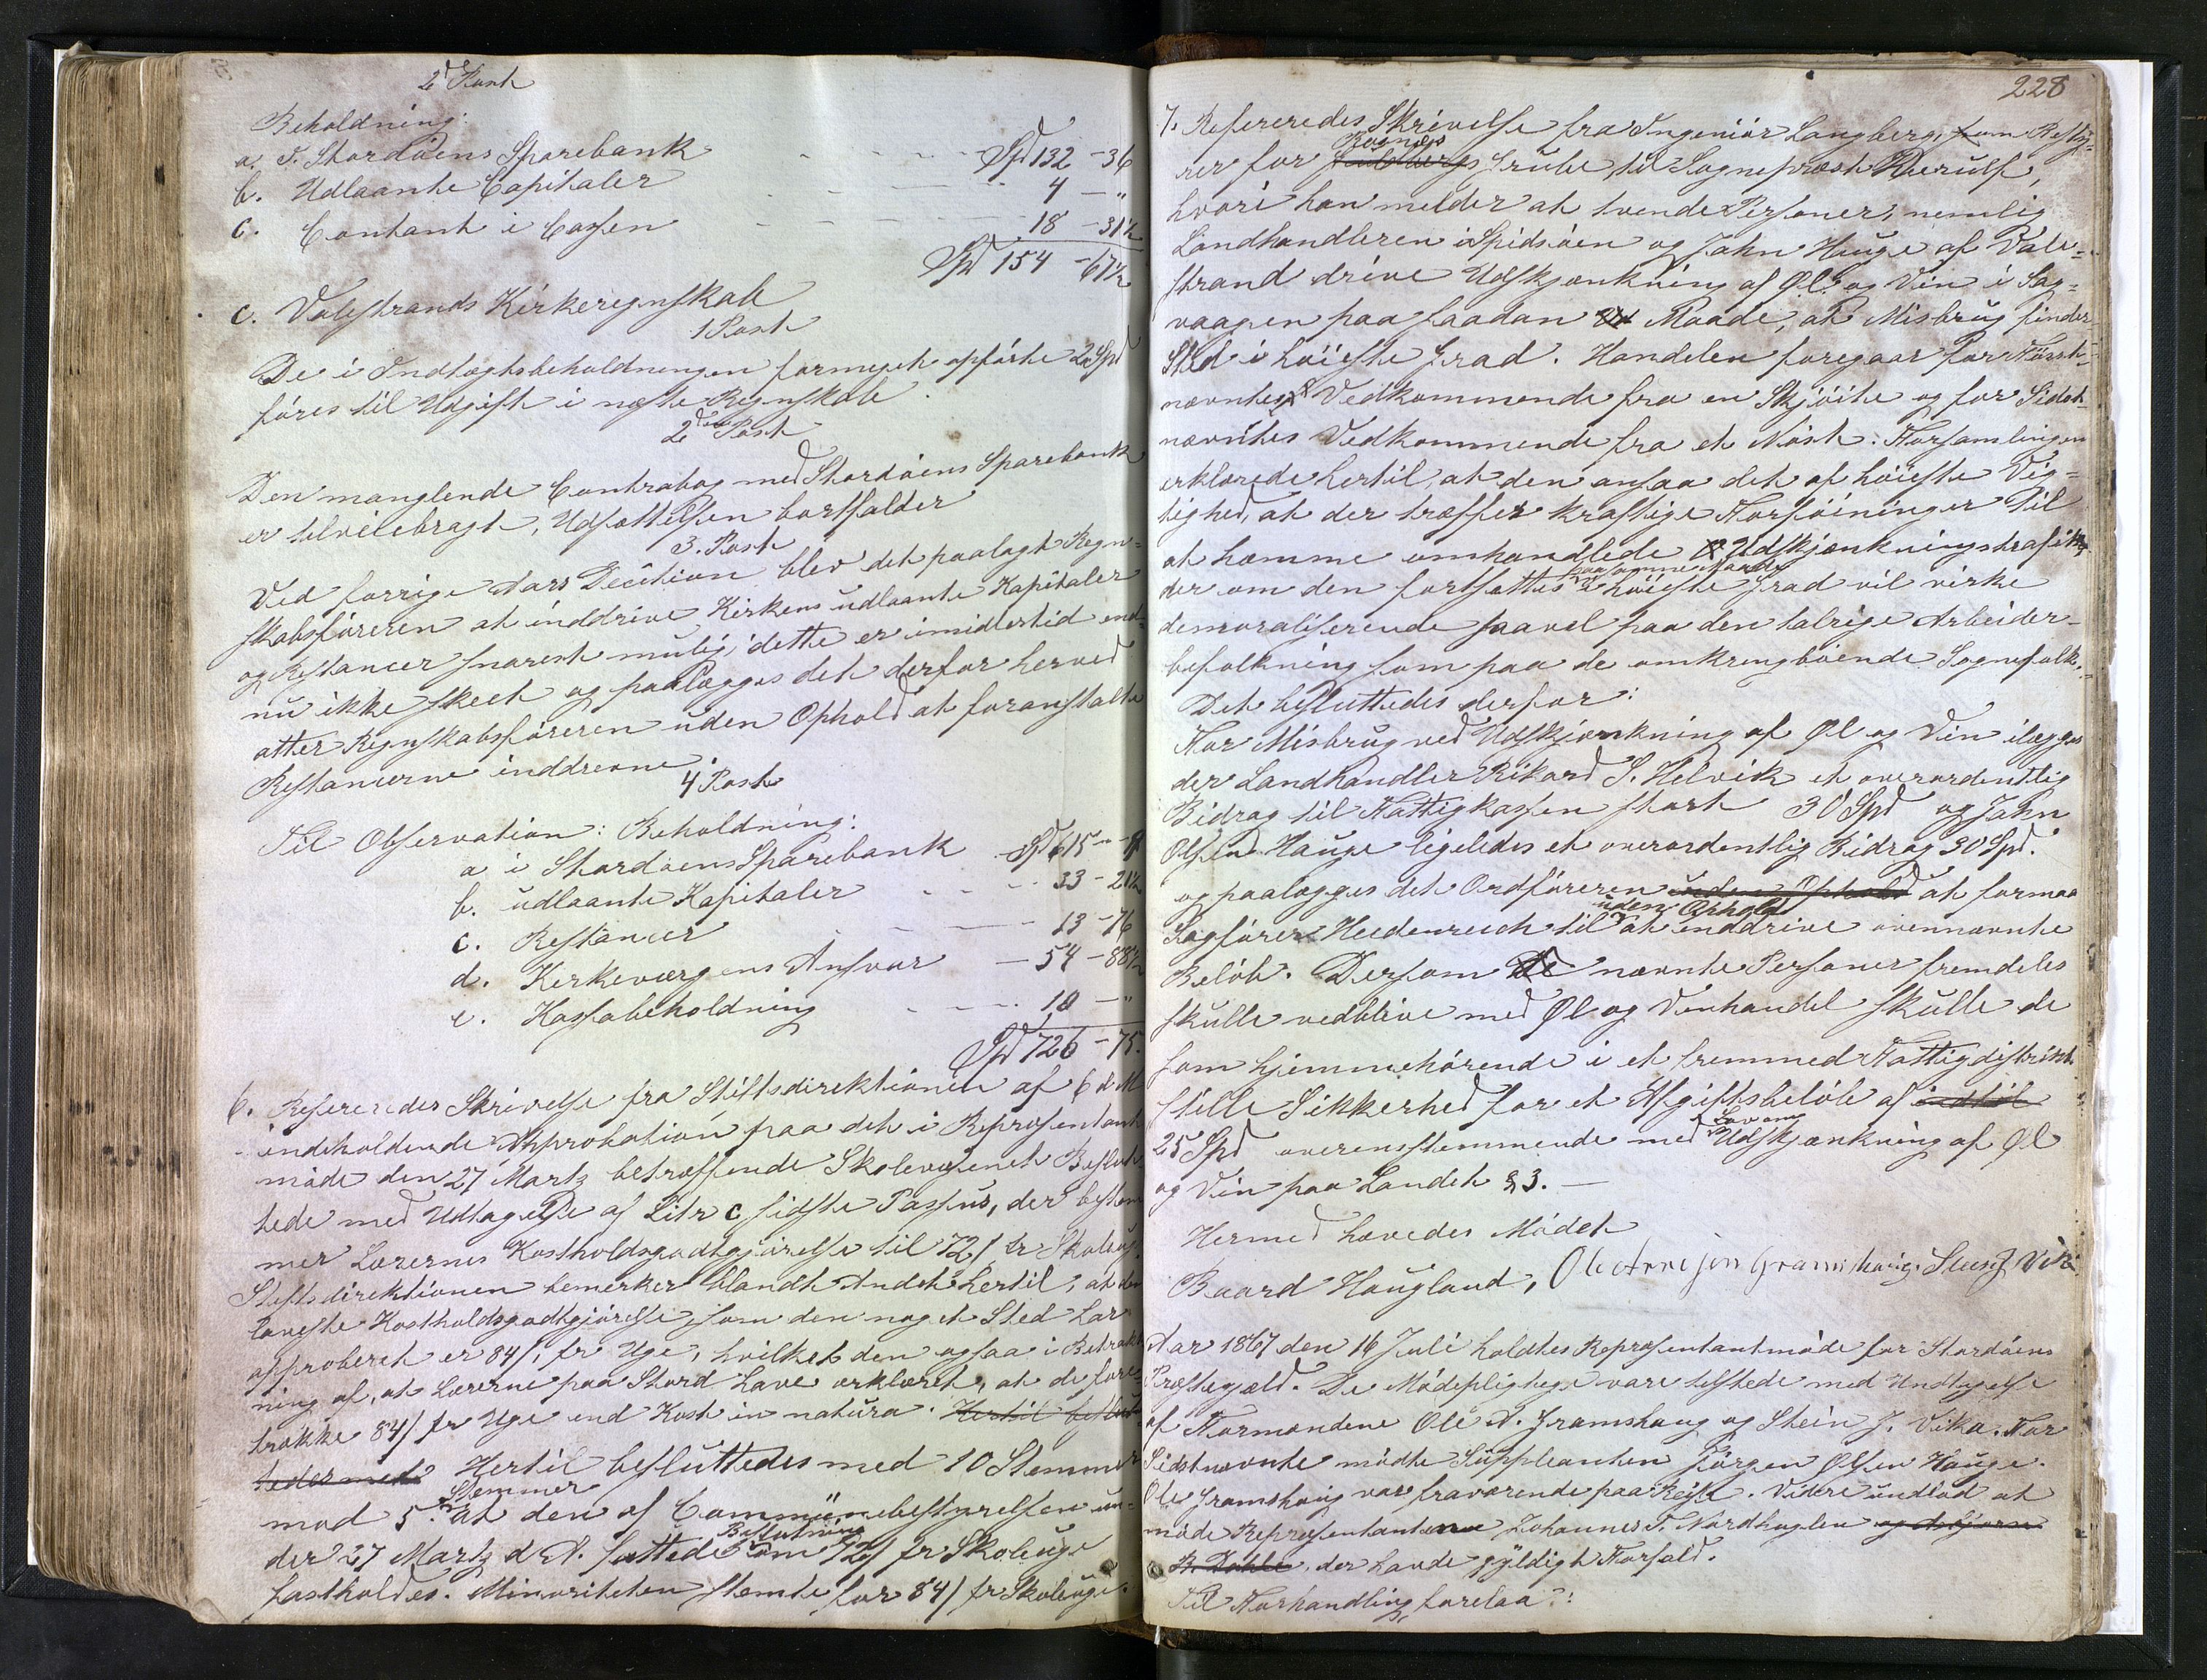 2d Post
Beholdning:
a. I. Stordöens Sparebank - - - - - Spd 132 - 36
b. Udlaante Capitaler - - - - - - 4 - "
c. Contant i Cassen - - - - - - 18 - 31½
Spd 154 - 67½
c. Valestrands Kirkeregnskab
1 Post
De i Indtægtsbeholdningen formeget opförte 2 Spd
föres til Udgift i næste Regnskab.
2den Post
Den manglende Contrabog med Stordöens Sparebank
er tilveiebragt, Udsættelsen bortfalder
3. Post
Ved forrige Aars Decition blev det paalagt Regn=
skabsföreren at inddrive Kirkens udlaante Kapitaler
og Restancer snarest mulig; dette er imidlertid end=
nu ikke skeet og paalægges det derfor herved
atter Regnskabsföreren uden Ophold at foranstalte
Restancerne inddrevne.
4 Post
Til Observation: Beholdning:
a i Stordöens Sparebank - Spd 615 - "
b. udlaante Kapitaler - - - - 33 - 21½
c. Restancer - - - - 13 - 76
d. Kirkeværgens Ansvar - 54 - 88½
e. Kassabeholdning - - - 10 - "
Spd 726 - 75.
6. Refereredes Skrivelse fra Stiftsdirektionen af 6 d M
indeholdende Approbation paa det i Repræsentant
möde den 27 Martz betræffende Skolevæsenet Beslut=
tede med Udtagelse af Litr c sidste Passus, der bestem
mer Lærernes Kostholdsgodtgjörelse til 72 ß pr Skoleug.
Stiftsdirektionen bemerker blandt Andet hertil, at den
laveste Kostholdsgodtgjörelse, som den noget Sted har
approberet er 84 ß pr Uge, hvilket den ogsaa i Betragt
ning af, at Lærerne paa Stord have erklæret, at de fore=
trække 84 ß pr Uge end Kost in natura. Hertil beslut=
tedes med Hertil besluttedes med 10 Stemmer
Stemmer
mod 5. at den af Communebestyrelsen un=
Beslutning
der 27 Martz d A. fattede om 72 ß pr Skoleuge
fastholdes. Minoriteten stemte for 84 ß pr Skoleuge.
228
7. Refereredes Skrivelse fra Ingeniör Langberg, som Besty=
rer for Grube, til Sognepræst Bierulf,
hvori han melder at tvende Personer, nemlig
Landhandleren i Spidsöen og John Hauge af Vale=
strand drive Udskjænkning af Øl og Vin i Sag=
vaagen paa saadan Maade, at Misbrug finder
Sted i höieste Grad. Handelen foregaar for Först=
nævntes Vedkommende fra en Skjöite og for Sidst=
nævntes Vedkommende fra et Nöst. Forsamlingen
erklærede hertil, at den ansaa det af höieste Vig=
tighed, at der træffes kraftige Forföininger til
at hæmme omhandlede Udskjænkningstrafik,
paa samme Maade
der om den fortsættes i höieste Grad vil virke
demoraliserende saavel paa den talrige Arbeider=
befolkning som paa de omkringboende Sognefolk.
Det besluttedes derfor:
For Misbrug ved Udskjænkning af Øl og Vin ilægges
der Landhandler Rikard S. Helvik et overordentlig
Bidrag til Fattigkassen stort 30 Spd og John
Olsen Hauge ligeledes et overordentlig Bidrag 30 Spd.
og paalægges det Ordföreren uden Ophold at formaa
uden Ophold
Sagförer Heidenreich til at inddrive ovennævnte
Belöb. Dersom De nævnte Personer fremdeles
skulle vedblive med Øl og Vinhandel skulle de
som hjemmehörende i et fremmed Fattigdistrikt
stille Sikkerhed for et Afgiftsbelöb af indtil
Lov om
25 Spd overensstemmende med Udskjænkning af Øl
og Vin paa Landet § 3. —
Hermed hævedes Mödet
Baard Haugland, Ole Arnesen Gramshaug. Stein J Vika
Aar 1867 den 16 Juli holdtes Repræsentantmöde for Stordöens
Præstegjæld. De Mödepligtige vare tilstede med Undtagelse
af Formændene Ole A. Gramshaug og Stein J. Vika. For
Sidstnævnte mödte Suppleanten Jörgen Olsen Hauge.
Ole Gramshaug var fraværende paa Reise. Videre undlod at
möde Repræsentanterne Johannes T. Nordhuglen og Asbjørn
B. Dahle, der havde gyldigt Forfald.
Til Forhandling forelaa: